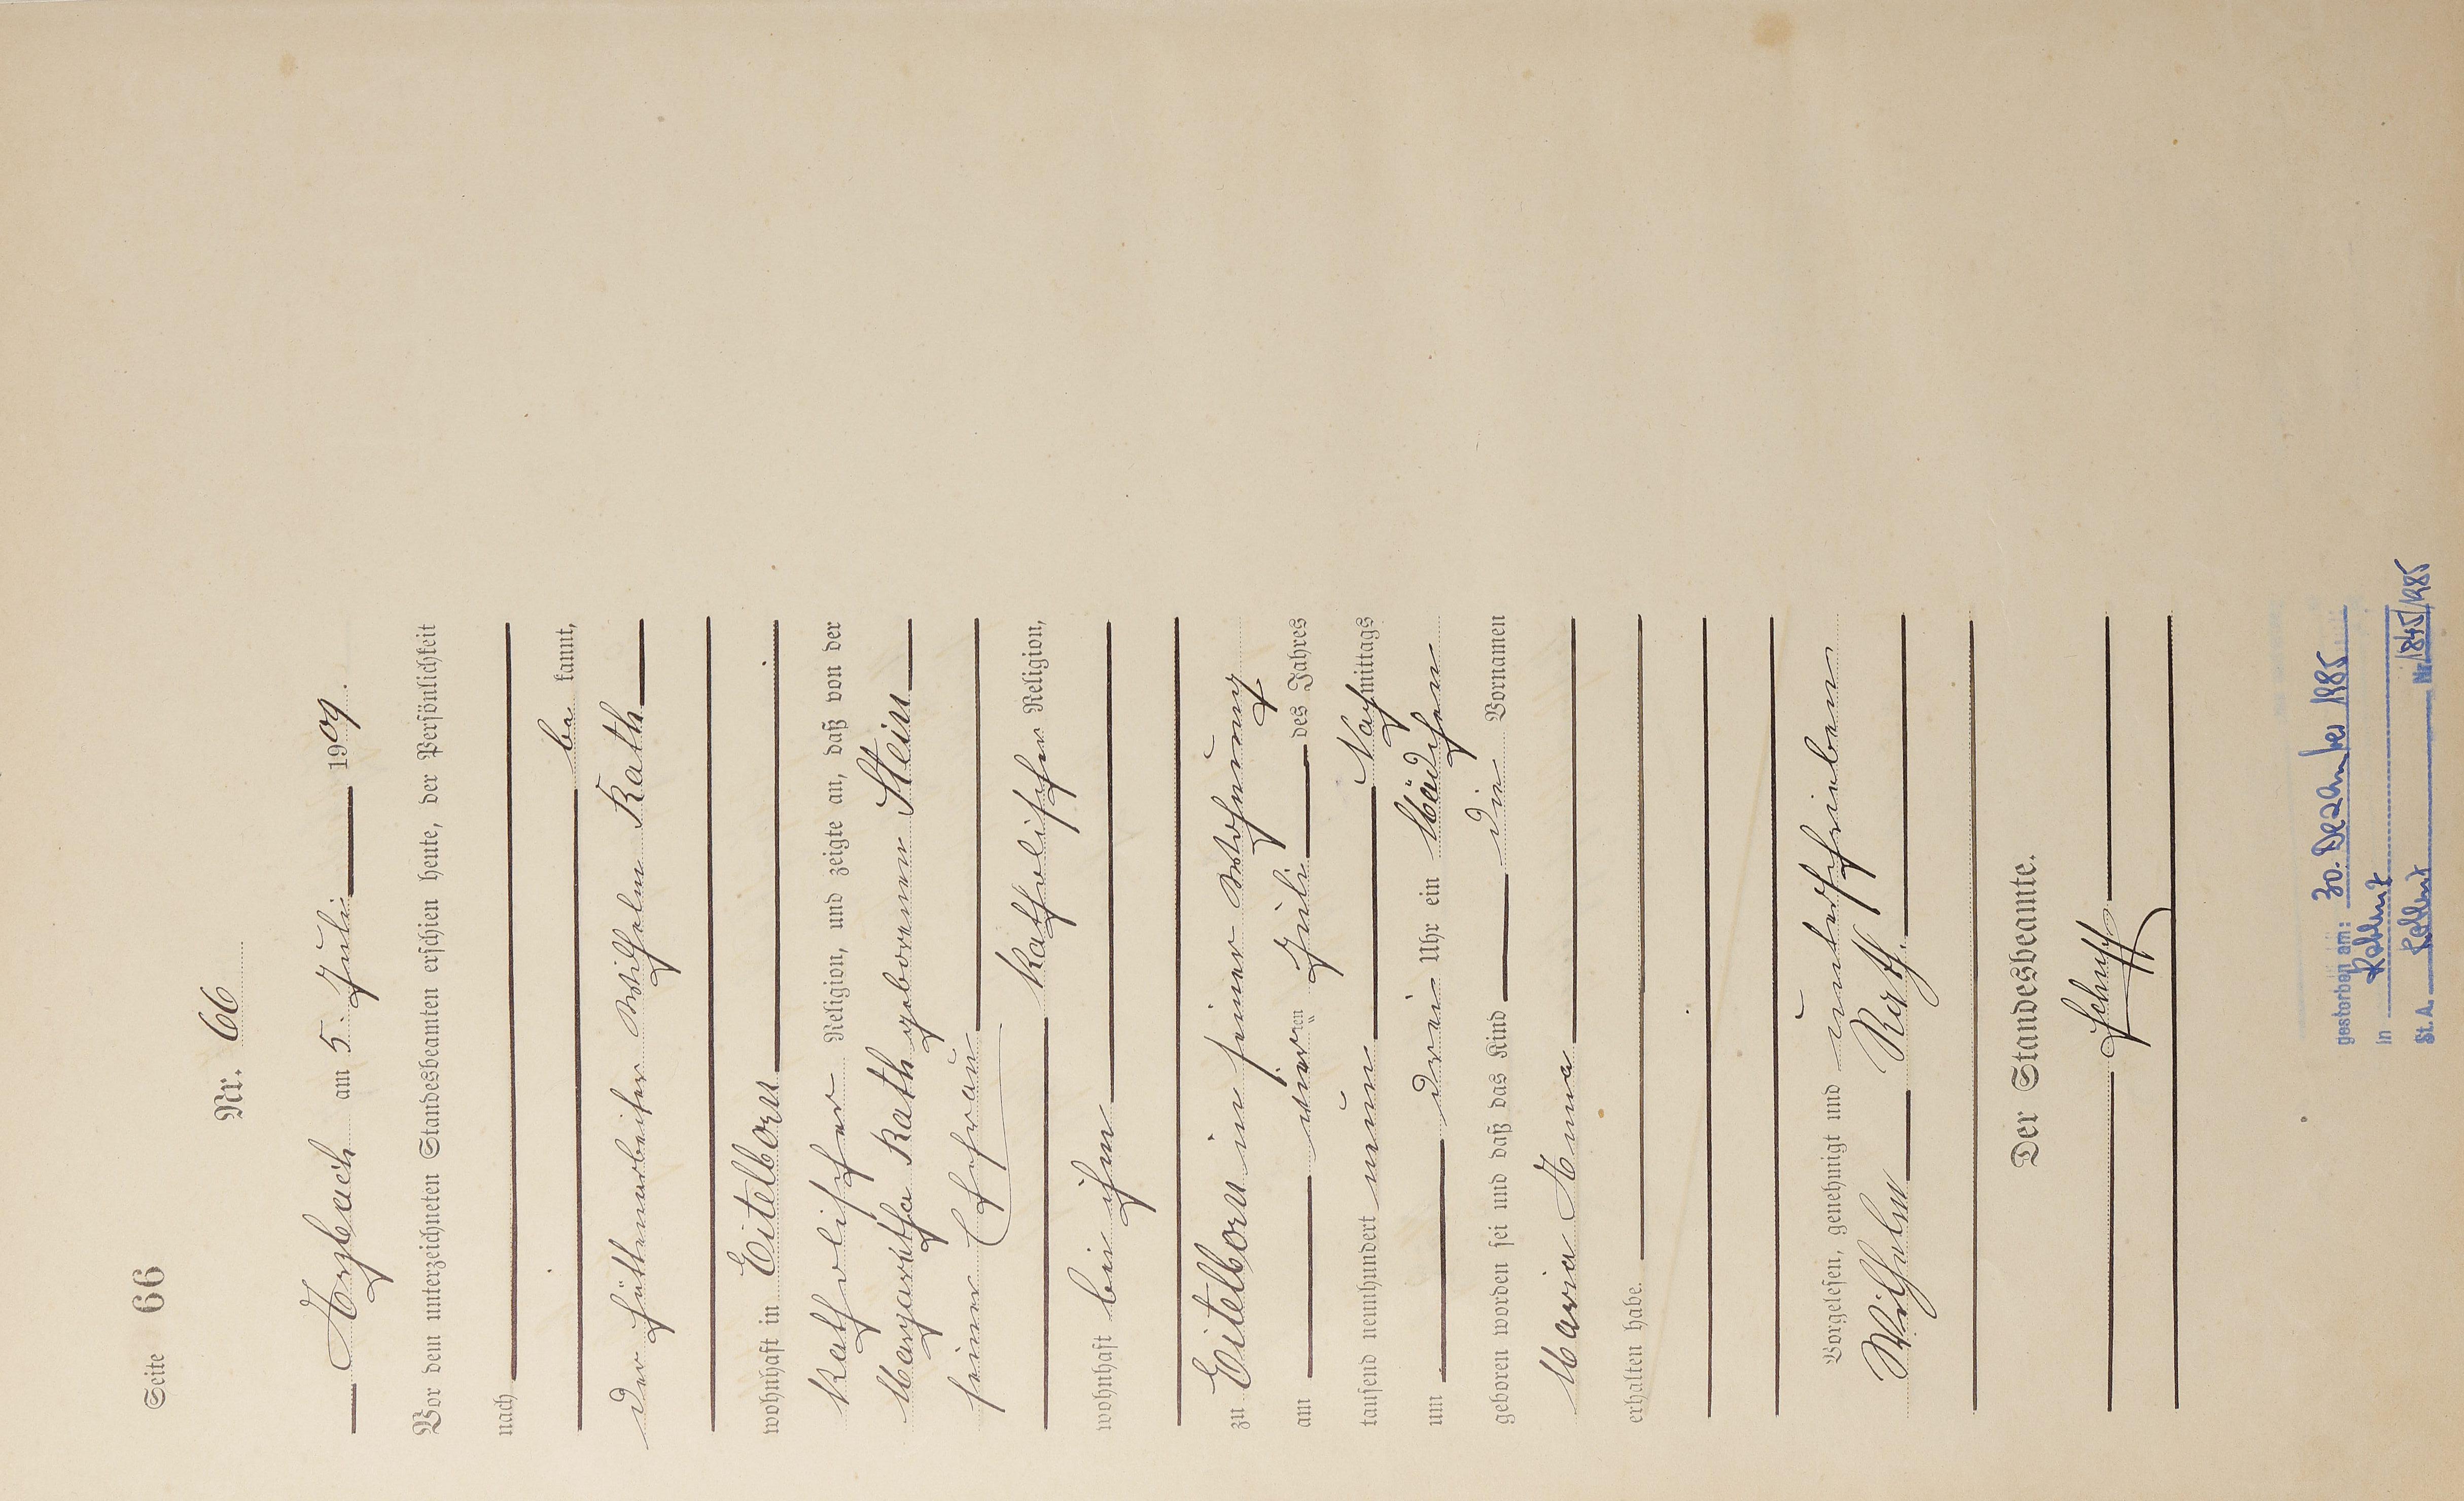 Seite 66
Nr. 66
Arzbach am 5. Juli 1909.
Vor dem unterzeichneten Standesbeamten erschien heute, der Persönlichkeit
nach
be kannt,
der Hüttenarbeiter Wilhelm Kath
wohnhaft in Eitelborn
katholischer Religion, und zeigte an, daß von der
Margaretha Kath geborenen Stein
seiner Ehefrau
katholischer Religion,
wohnhaft bei ihm
zu Eitelborn in seiner Wohnung
am vierten Juli des Jahres
tausend neunhundert neun Nachmittags
um drei Uhr ein Mädchen
geboren worden sei und daß das Kind die Vornamen
Maria Anna
erhalten habe.
Vorgelesen, genehmigt und unterschrieben
Wilhelm Kath.
Der Standesbeamte.
gestorben am: 30. Dezember 1985
in Koblenz
St. A. Koblenz Nr. 1845/1985